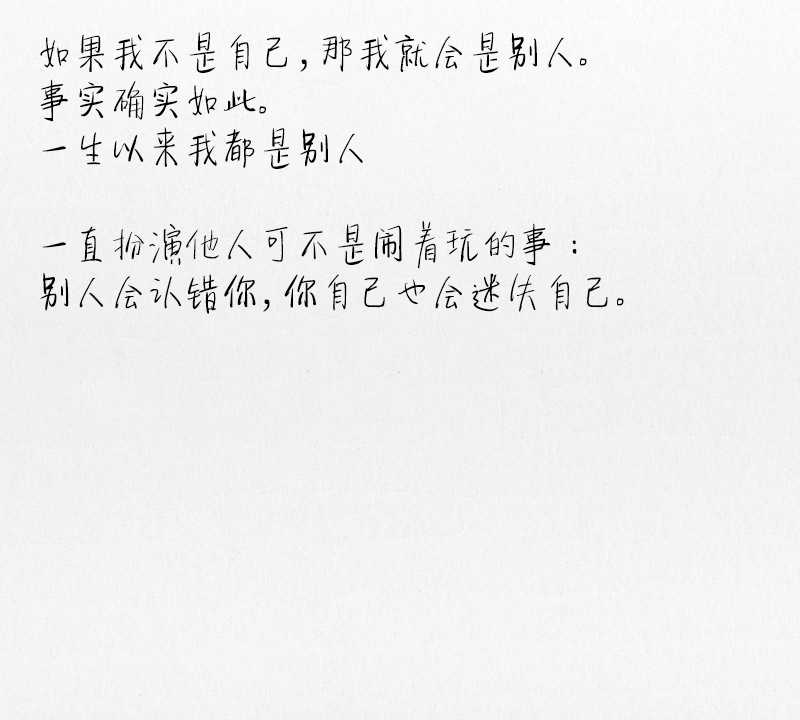 如果我不是自己，那我就会是别人。
事实确实如此。
一生以来我都是别人

一直扮演他人可不是闹着玩的事：
别人会认错你，你自己也会迷失自己。